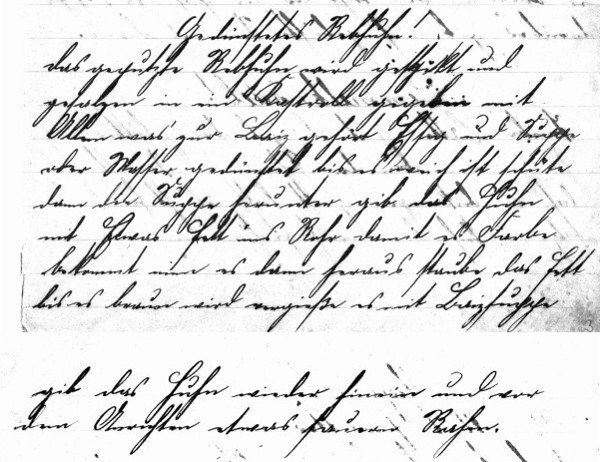 Gedünstetes Rebhuhn!
das geputzte Rebhuhn wird gespikt, und
gesalzen in ein Kastroll gegeben mit
Allem was zur Baiz gehört Essig und Suppe
oder Wasser, gedünstet bis es weich ist schüte
dann die Suppe herunter gib das Huhn
mit Etwas Fett ins Rohr damit es Farbe
bekommt nim es dann heraus staube das Fett
bis es braun wird vergieße es mit Baizsuppe
gib das Huhn wieder hinein und vor
dem Anrichten etwas sauern Rahm.